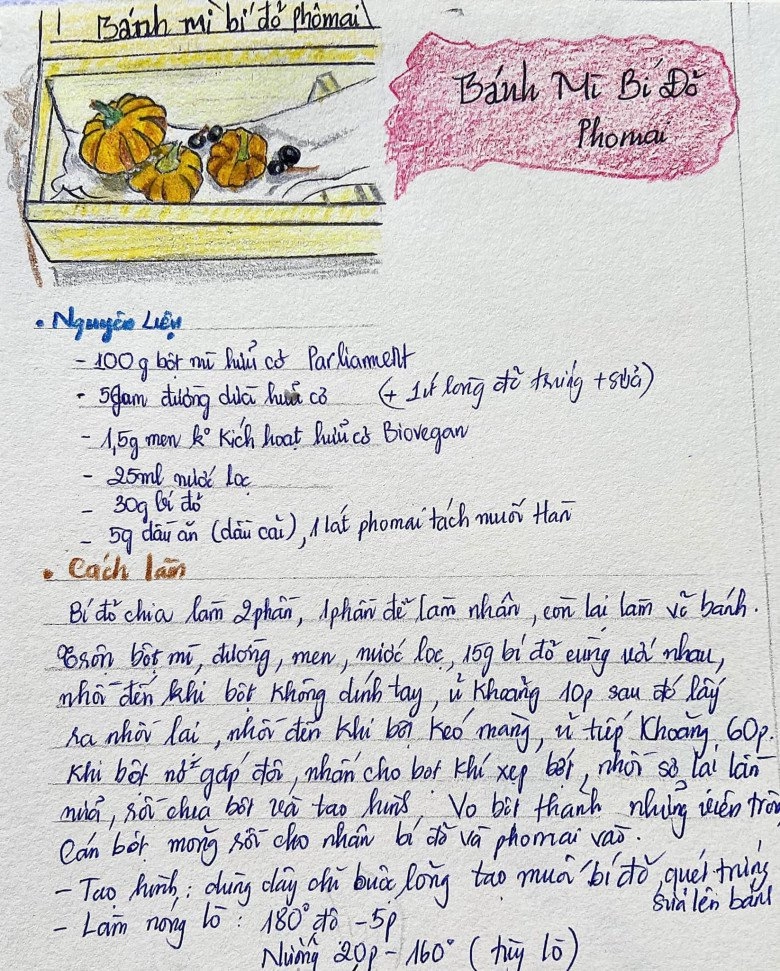 Bánh mì bí đỏ phômai
Bánh Mì Bí Đỏ
Phomai
• Nguyên Liệu
- 100g bột mì hữu cơ Parliament
- 5gam đường dừa hữu cơ (+ 1 ít lòng đỏ trứng + sữa)
- 1,5g men k° kích hoạt hữu cơ Biovegan
- 25ml nước lọc
- 30g bí đỏ
- 5g dầu ăn (dầu cải), 1 lát phomai tách muối Hàn
• Cách làm
Bí đỏ chia làm 2 phần, 1 phần để làm nhân, còn lại làm vỏ bánh.
Trộn bột mì, đường, men, nước lọc, 15g bí đỏ cùng với nhau,
nhồi đến khi bột không dính tay, ủ khoảng 10p sau đó lấy
ra nhồi lại, nhồi đến khi bột kéo màng, ủ tiếp khoảng 60p.
Khi bột nở gấp đôi, nhấn cho bọt khí xẹp bớt, nhồi sơ lại lần
nữa, rồi chia bột và tạo hình. Vo bột thành những viên tròn
cán bột mỏng rồi cho nhân bí đỏ và phomai vào.
- Tạo hình: dùng dây chỉ buộc lỏng tạo múi bí đỏ, quét trứng
sữa lên bánh
- Làm nóng lò: 180° độ - 5p
Nướng 20p - 160° (tùy lò)